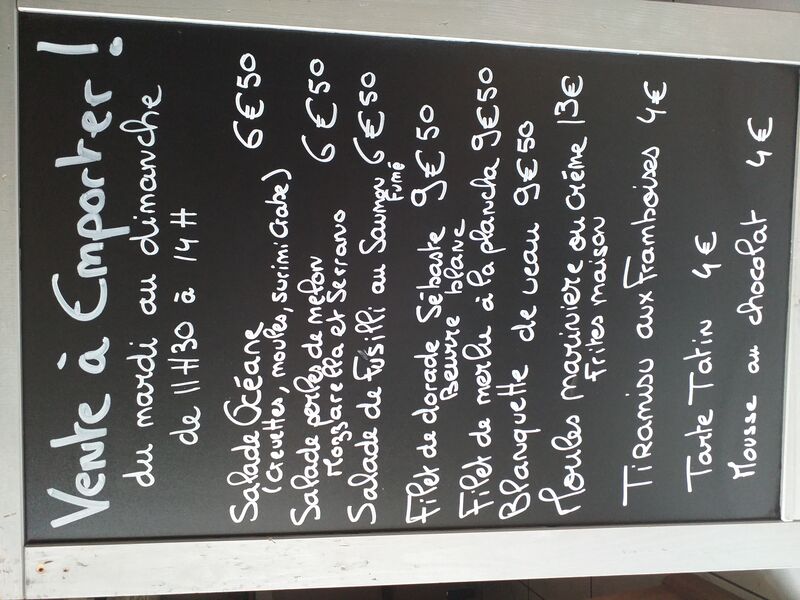 Vente à Emporter !
du mardi au dimanche
de 11H30 à 14H
Salade Océane 6€50
(Crevettes, moules, surimi Crabe)
Salade perles de melon 6€50
Mozzarella et Serrano
Salade de Fusilli au Saumon 6€50
Fumé
Filet de dorade Sébaste 9€50
Beurre blanc
Filet de merlu à la plancha 9€50
Blanquette de veau 9€50
Moules marinière ou Crème 13€
Frites maison
Tiramisu aux Framboises 4€
Tarte Tatin 4€
Mousse au chocolat 4€